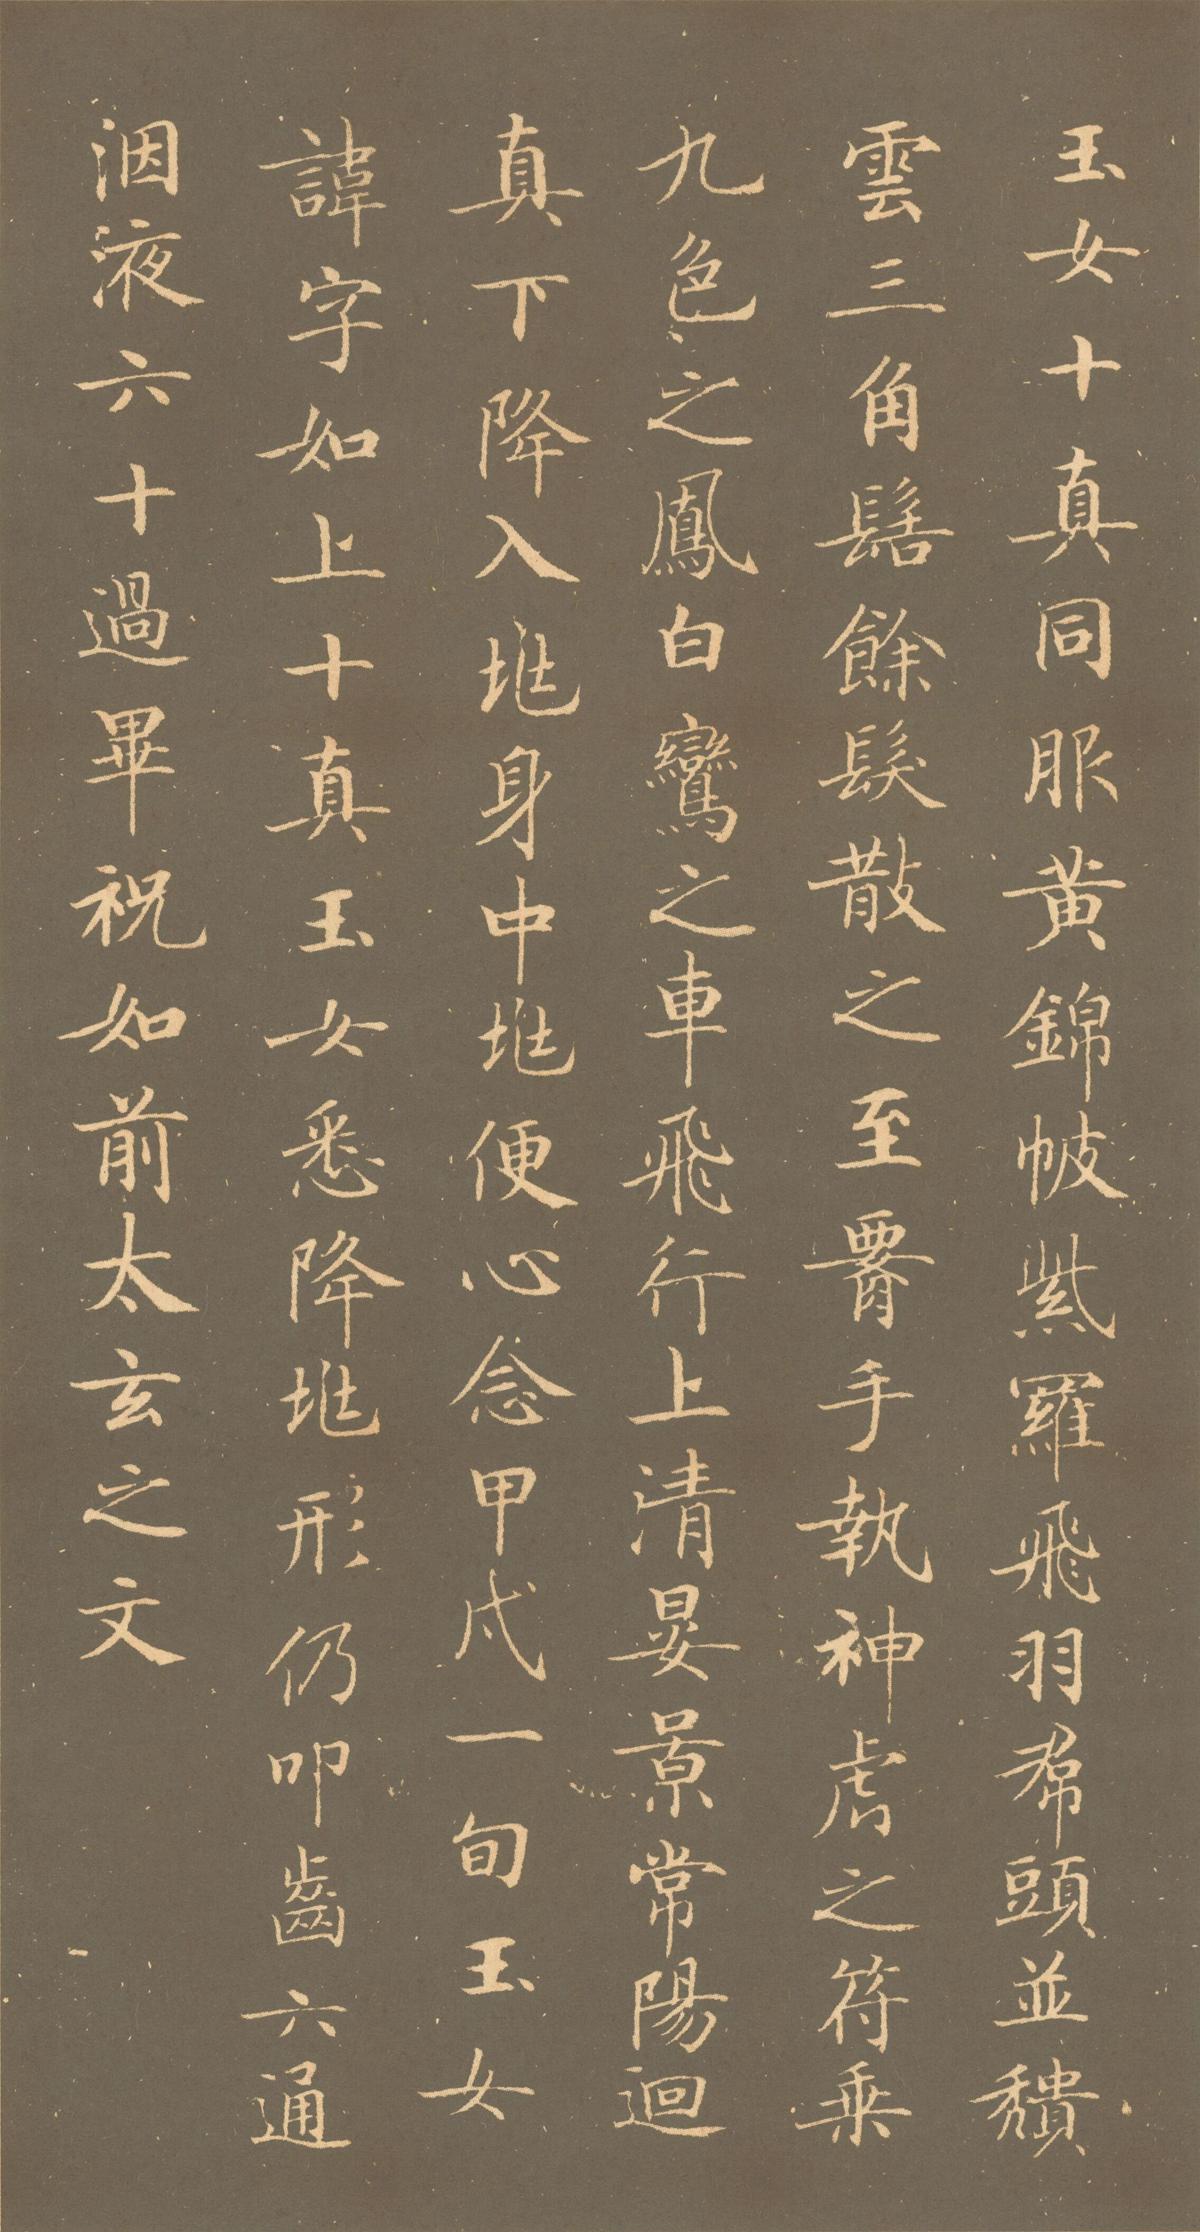 玉女十真同服黄錦帔紫羅飛羽帬頭並頽
雲三角髻餘髮散之至署手執神虎之符乗
九色之鳳白鸞之車飛行上清晏景常陽迴
真下降入地身中地便心念甲戌一旬玉女
諱字如上十真玉女悉降地形仍叩齒六通
洇液六十過畢祝如前太玄之文